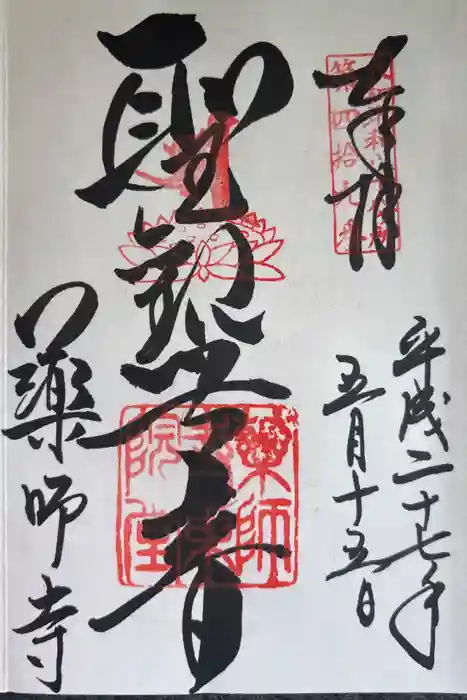 奉拝
第四拾九番
平成二十七年
五月十五日
聖観世音
薬師寺